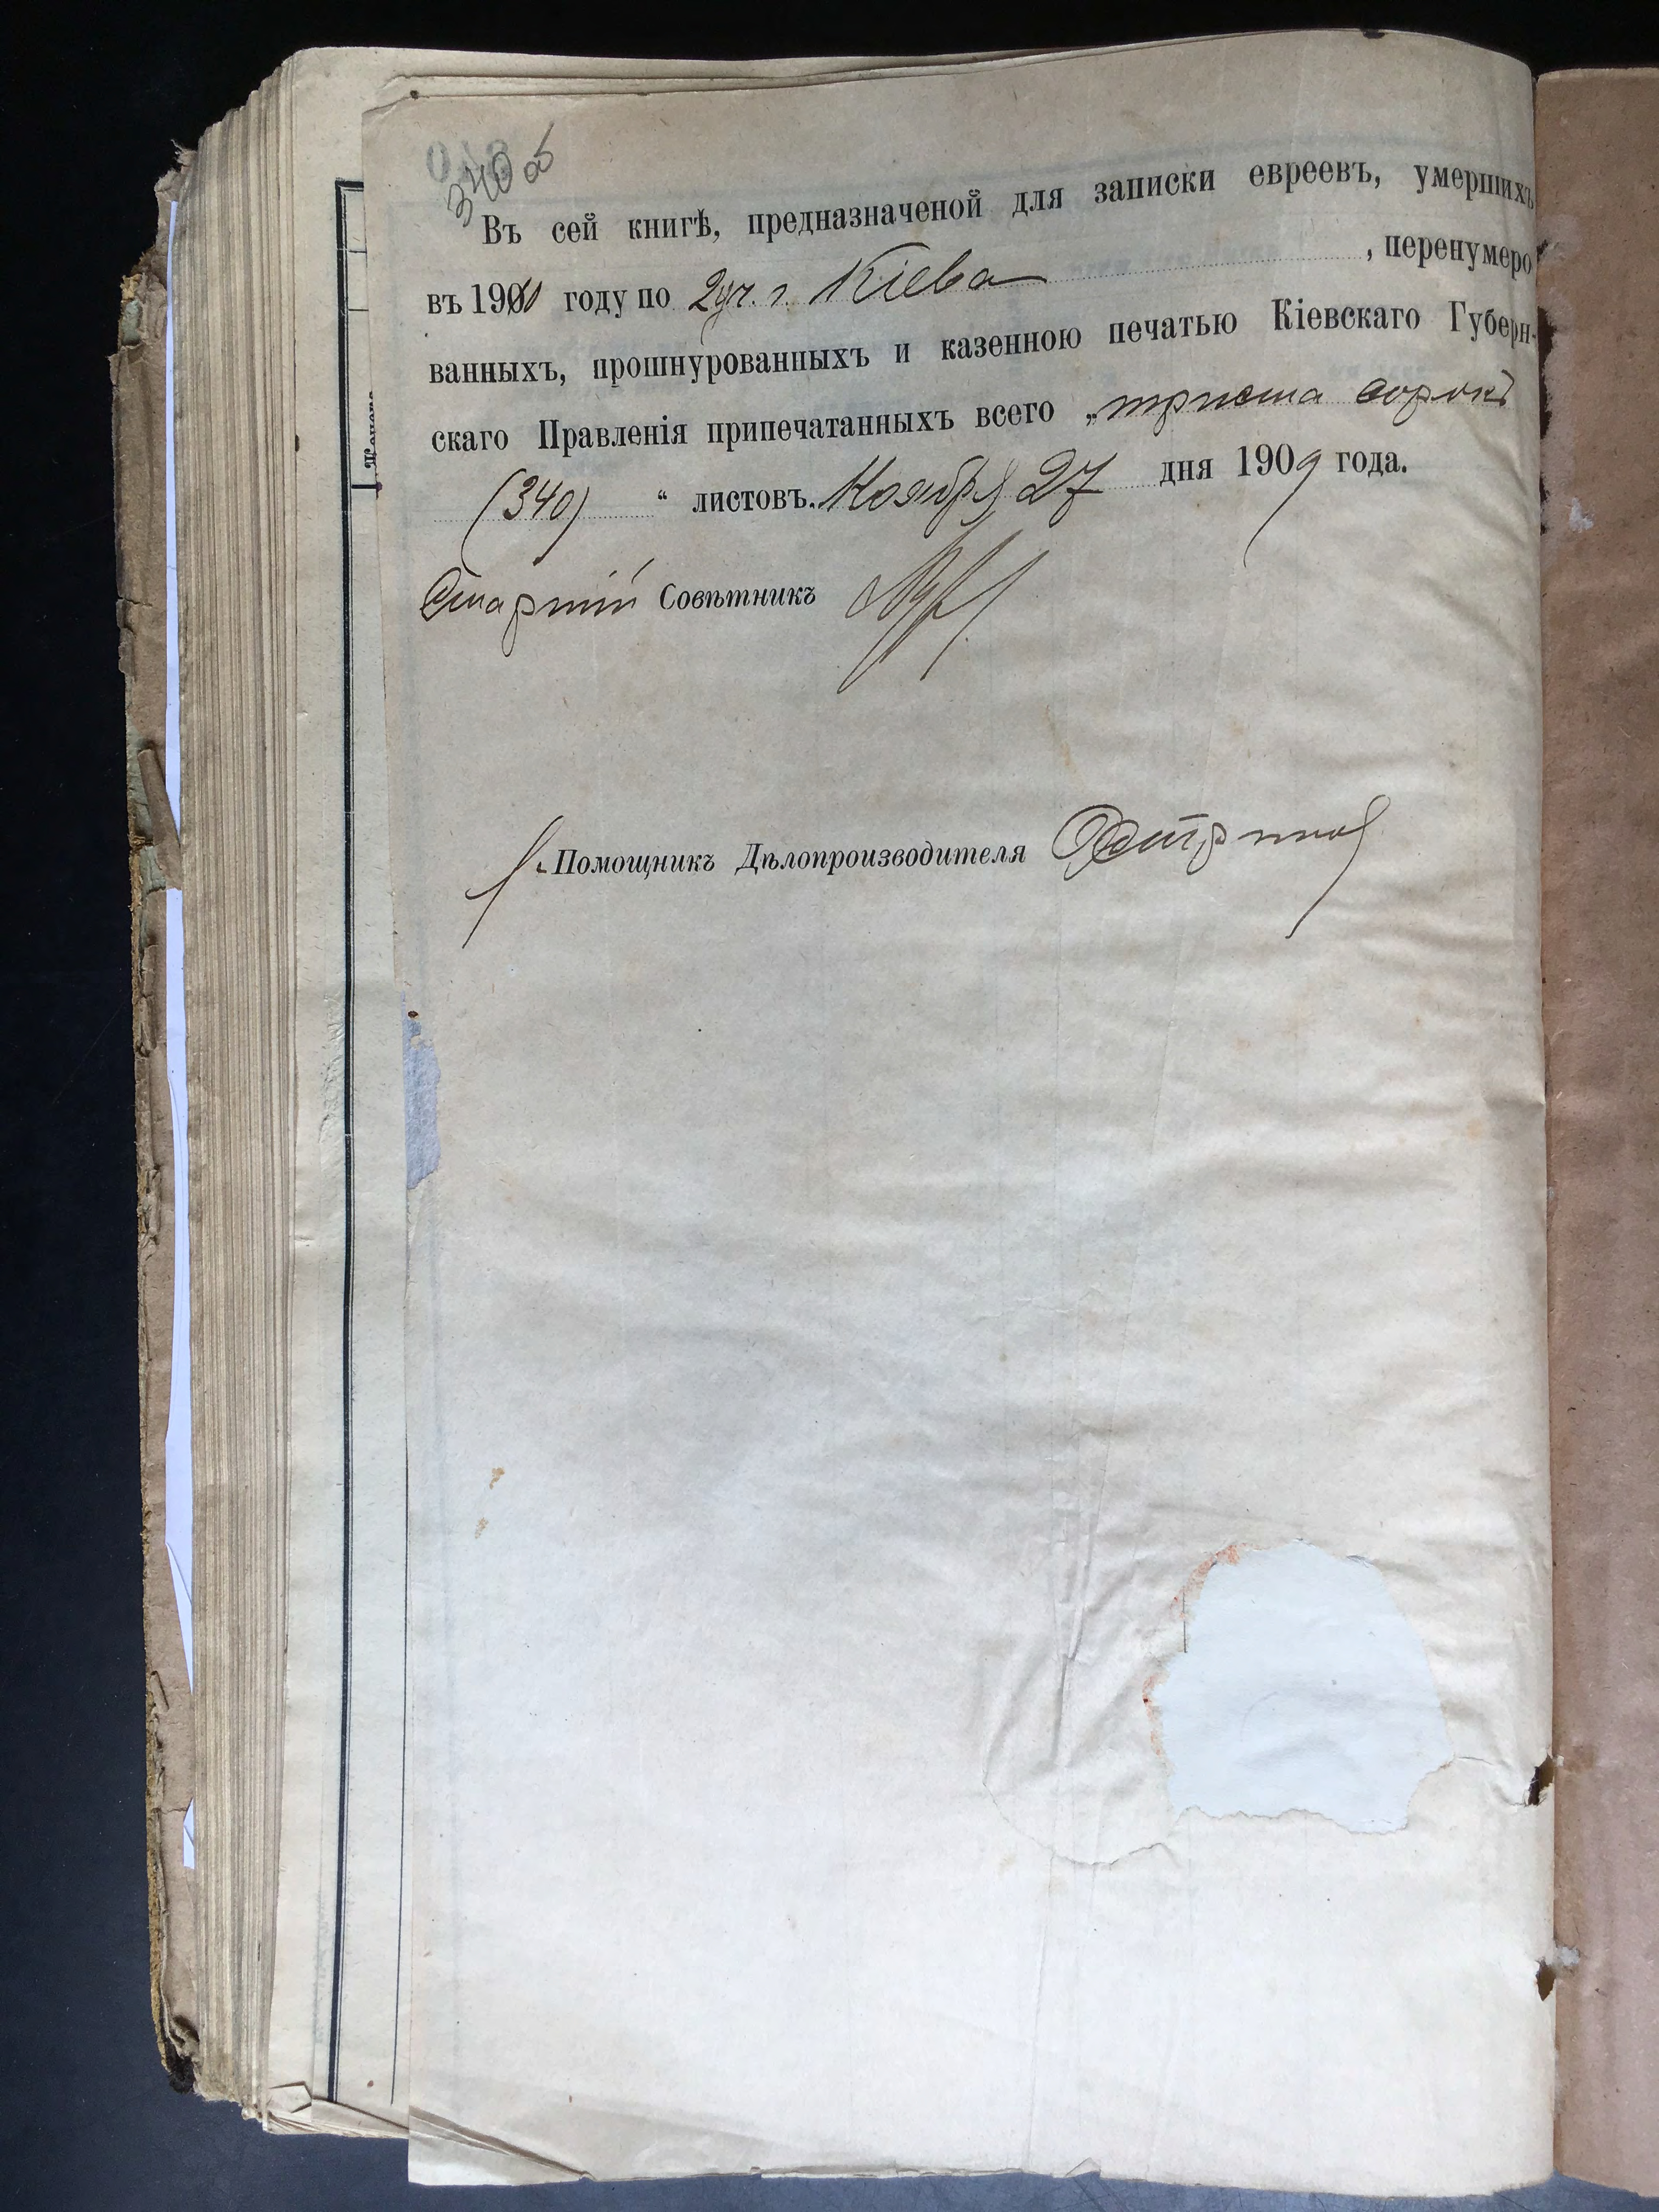 340 об
Въ сей книгѣ, предназначеной для записки евреевъ, умершихъ
въ 1910 году по 2 уч. г. Кіева , перенумеро
ванныхъ, прошнурованныхъ и казенною печатью Кіевскаго Губерн-
скаго Правленія припечатанныхъ всего „триста сорокъ
(340) “ листовъ. Ноября 27 дня 1909 года.
Старшій Совѣтникъ
Помощникъ Дѣлопроизводителя